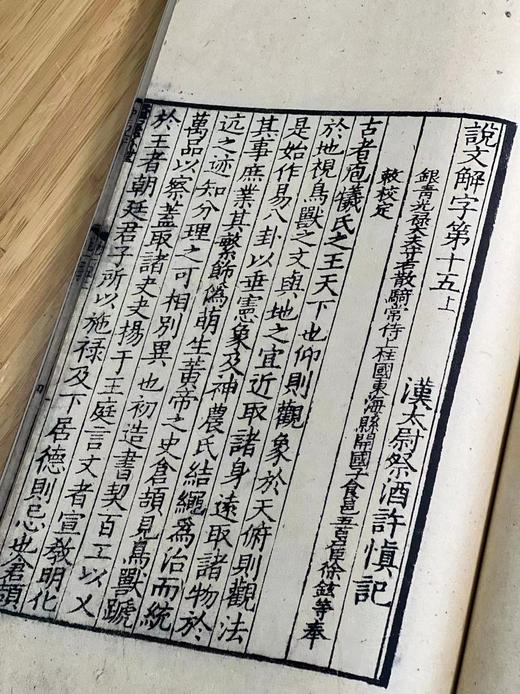 說文解字第十五上 漢太尉祭酒許慎記
銀青光祿大夫守右散騎常侍上柱國東海縣開國子食邑五百戶徐鉉等奉
敕校定
古者庖犧氏之王天下也仰則觀象於天俯則觀法
於地視鳥獸之文與地之宜近取諸身遠取諸物於
是始作易八卦以垂憲象及神農氏結繩爲治而統
其事庶業其繁飾僞萌生黃帝之史倉頡見鳥獸蹏
迒之迹知分理之可相別異也初造書契百工以乂
萬品以察蓋取諸夬夬揚于王庭言文者宣教明化
於王者朝廷君子所以施祿及下居德則忌也倉頡